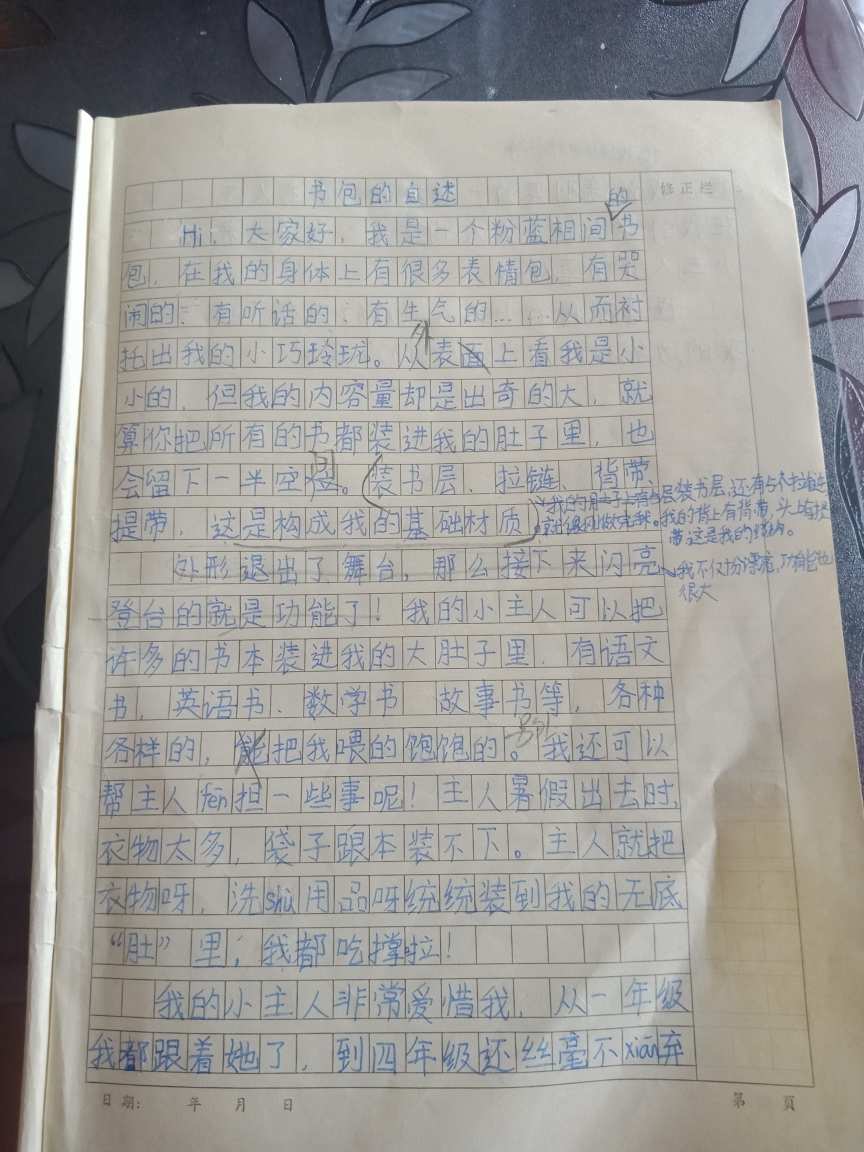 书包的自述
修正栏
的
Hi,大家好,我是一个粉蓝相间书
包,在我的身体上有很多表情包,有哭
闹的、有听话的、有生气的……从而衬
托出我的小巧玲珑。从表面上看我是小
外
小的,但我的内容量却是出奇的大,就
算你把所有的书都装进我的肚子里,也
会留下一半空。装书层、拉链、背带、
间
提带,这是构成我的基础材质
层装书层,还有
我的背上有背带,头上有提
带这是我的
外形退出了舞台,那么接下来闪亮
我不仅扮漂亮,功能也
很大
登台的就是功能了!我的小主人可以把
许多的书本装进我的大肚子里,有语文
书,英语书、数学书 故事书等,各种
各样的,能把我喂的饱饱的。我还可以
帮主人fēn担一些事呢!主人暑假出去时,
衣物太多,袋子跟本装不下。主人就把
衣物呀,洗shù用品呀统统装到我的无底
“肚”里;我都吃撑啦!
我的小主人非常爱惜我,从一年级
我都跟着她了,到四年级还丝毫不xián弃
日期: 年 月 日
第 页